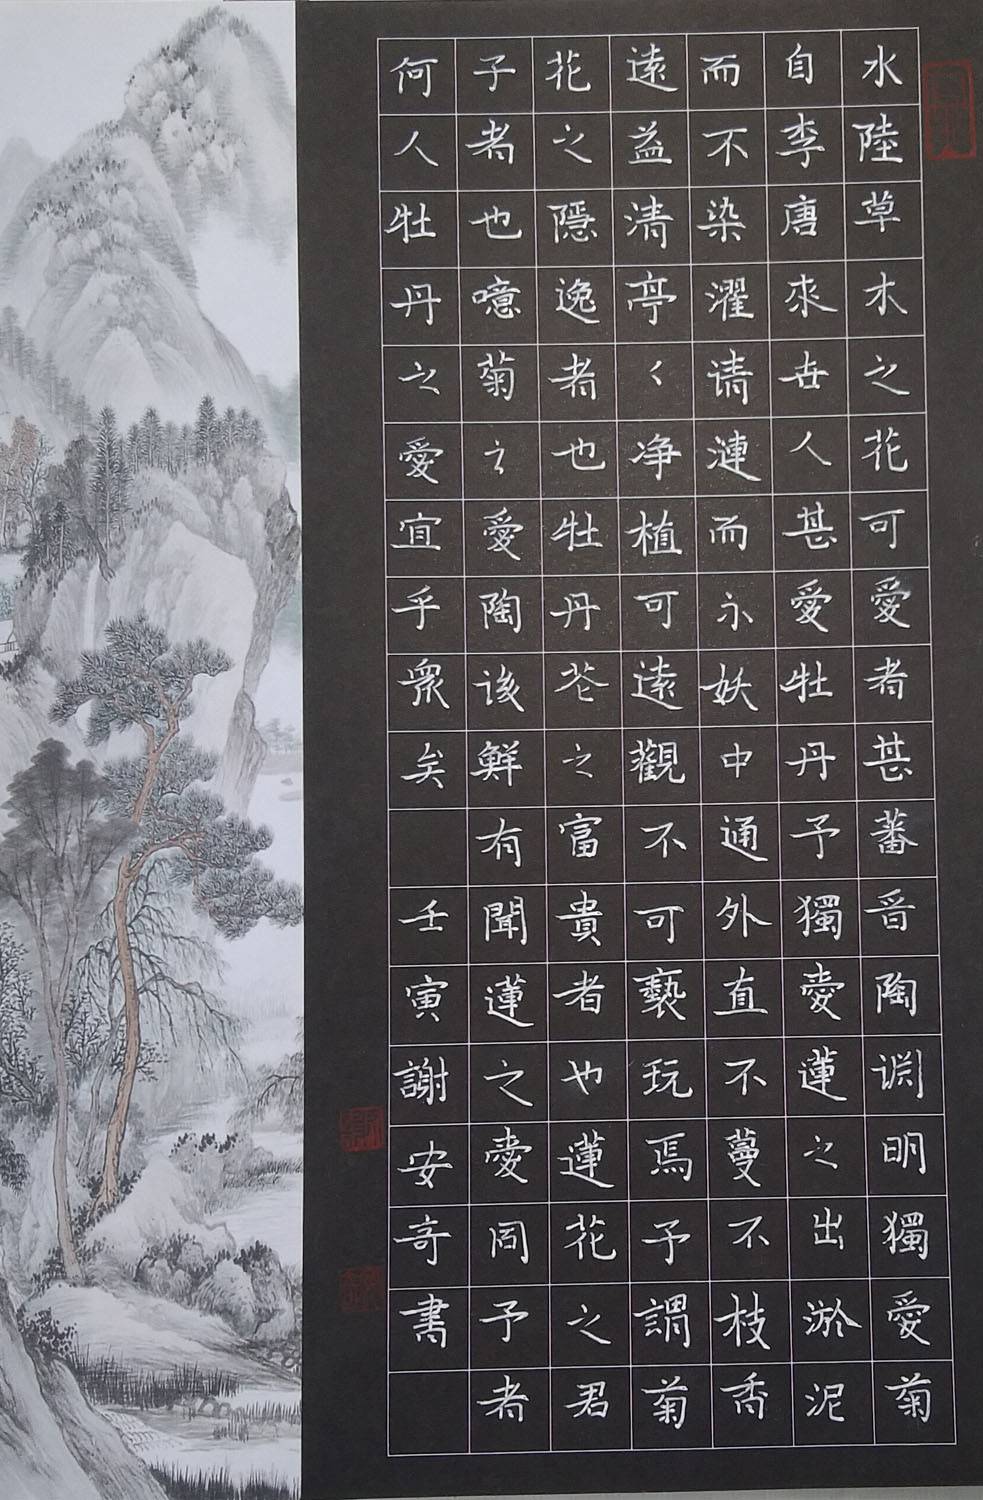 水陸草木之花可愛者甚蕃晋陶渊明獨愛菊
自李唐來世人甚愛牡丹予獨愛蓮之出淤泥
而不染濯清漣而不妖中通外直不蔓不枝香
遠益清亭々净植可遠觀不可褻玩焉予謂菊
花之隱逸者也牡丹花之富貴者也蓮花之君
子者也噫菊之愛陶後鮮有聞蓮之愛同予者
何人牡丹之愛宜乎眾矣 壬寅謝安奇書